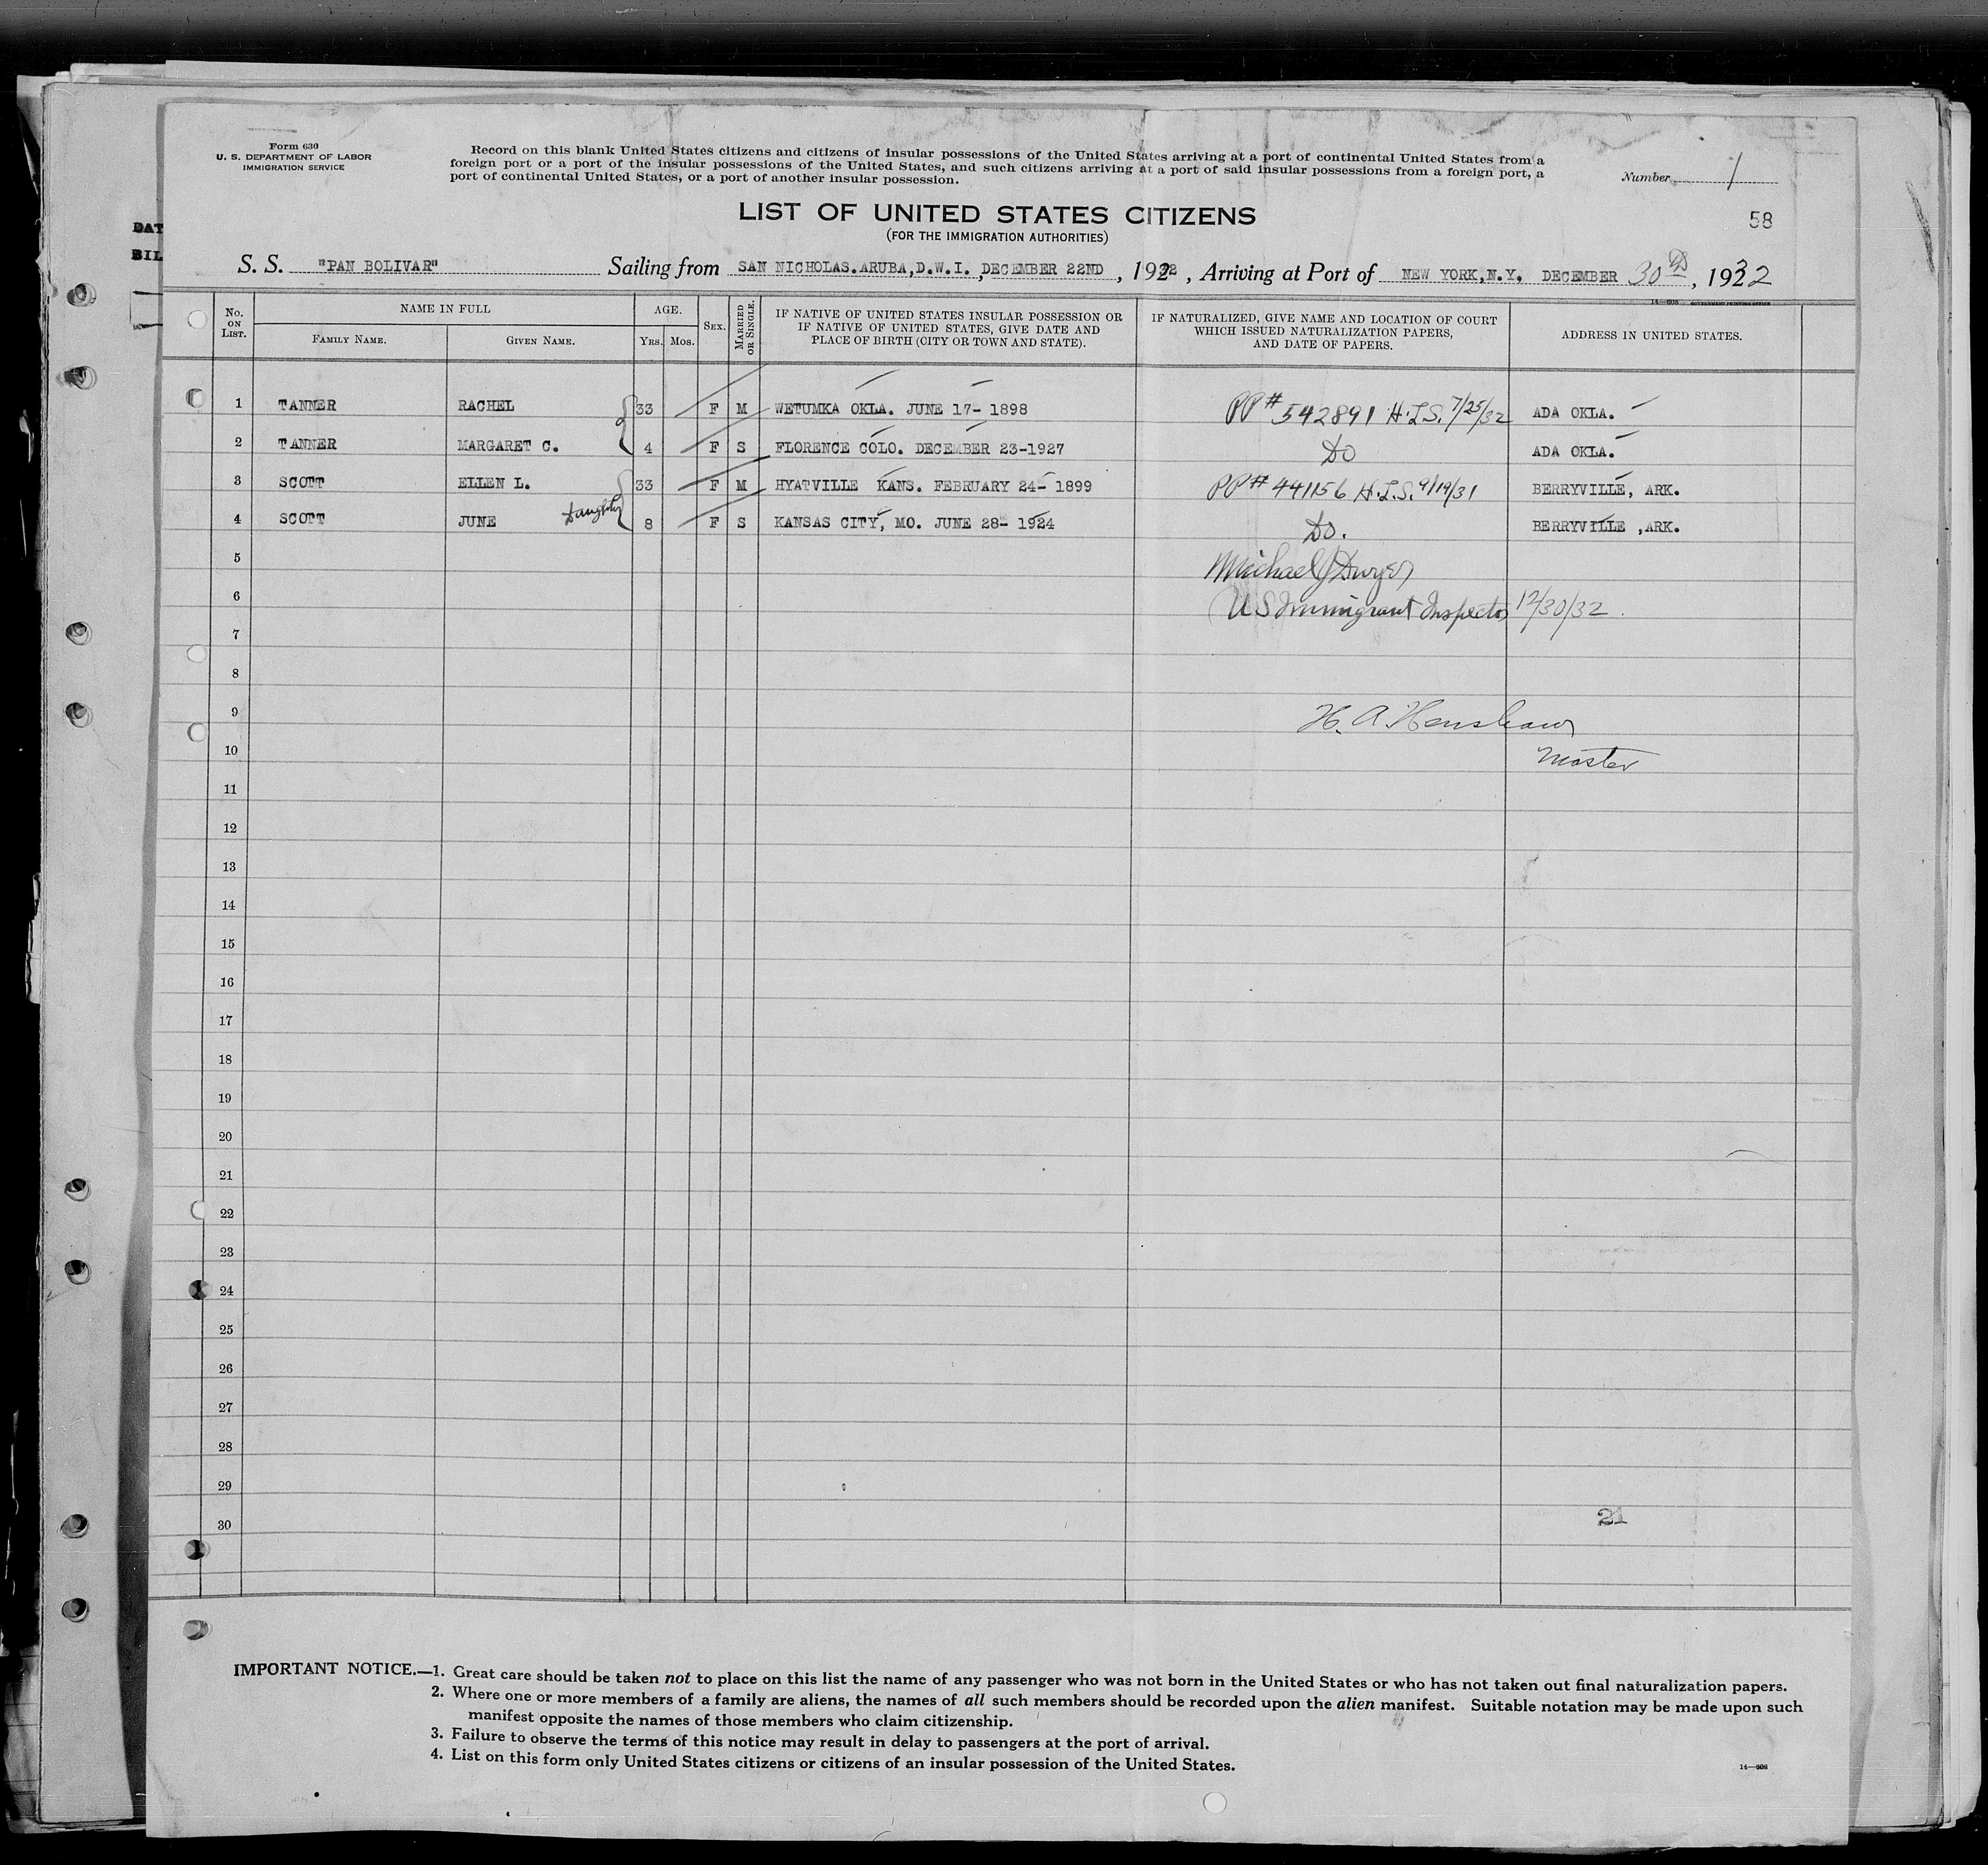 Form 630
U. S. DEPARTMENT OF LABOR
IMMIGRATION SERVICE
Record on this blank United States citizens and citizens of insular possessions of the United States arriving at a port of continental United States from a
foreign port or a port of the insular possessions of the United States, and such citizens arriving at a port of said insular possessions from a foreign port, a
port of continental United States, or a port of another insular possession.
Number 1
LIST OF UNITED STATES CITIZENS
(FOR THE IMMIGRATION AUTHORITIES)
58
DAT
BIL
S. S. "PAN BOLIVAR" Sailing from SAN NICHOLAS.ARUBA,D.W.I., DECEMBER 22ND, 1932, Arriving at Port of NEW YORK,N.Y. DECEMBER 30th, 1932
14—608 GOVERNMENT PRINTING OFFICE
No. ON LIST. NAME IN FULL FAMILY NAME. GIVEN NAME. AGE. YRS. MOS. SEX. MARRIED OR SINGLE. IF NATIVE OF UNITED STATES INSULAR POSSESSION OR IF NATIVE OF UNITED STATES, GIVE DATE AND PLACE OF BIRTH (CITY OR TOWN AND STATE). IF NATURALIZED, GIVE NAME AND LOCATION OF COURT WHICH ISSUED NATURALIZATION PAPERS, AND DATE OF PAPERS. ADDRESS IN UNITED STATES.
1 TANNER RACHEL 33 F M WETUMKA OKLA. JUNE 17- 1898 PP# 542891 H.L.S. 7/25/32 ADA OKLA.
2 TANNER MARGARET C. 4 F S FLORENCE COLO. DECEMBER 23-1927 Do ADA OKLA.
3 SCOTT ELLEN L. 33 F M HYATVILLE KANS. FEBRUARY 24- 1899 PP# 441156 H.L.S. 9/19/31 BERRYVILLE, ARK.
4 SCOTT JUNE Daughter 8 F S KANSAS CITY, MO. JUNE 28- 1924 Do. BERRYVILLE ,ARK.
5 Michael J Dwyer
6 US Immigrant Inspector 12/30/32.
7
8
9 H. A. Henshaw
10 Master
11
12
13
14
15
16
17
18
19
20
21
22
23
24
25
26
27
28
29
30 21
IMPORTANT NOTICE.—1. Great care should be taken not to place on this list the name of any passenger who was not born in the United States or who has not taken out final naturalization papers.
2. Where one or more members of a family are aliens, the names of all such members should be recorded upon the alien manifest. Suitable notation may be made upon such
manifest opposite the names of those members who claim citizenship.
3. Failure to observe the terms of this notice may result in delay to passengers at the port of arrival.
4. List on this form only United States citizens or citizens of an insular possession of the United States.
14—608